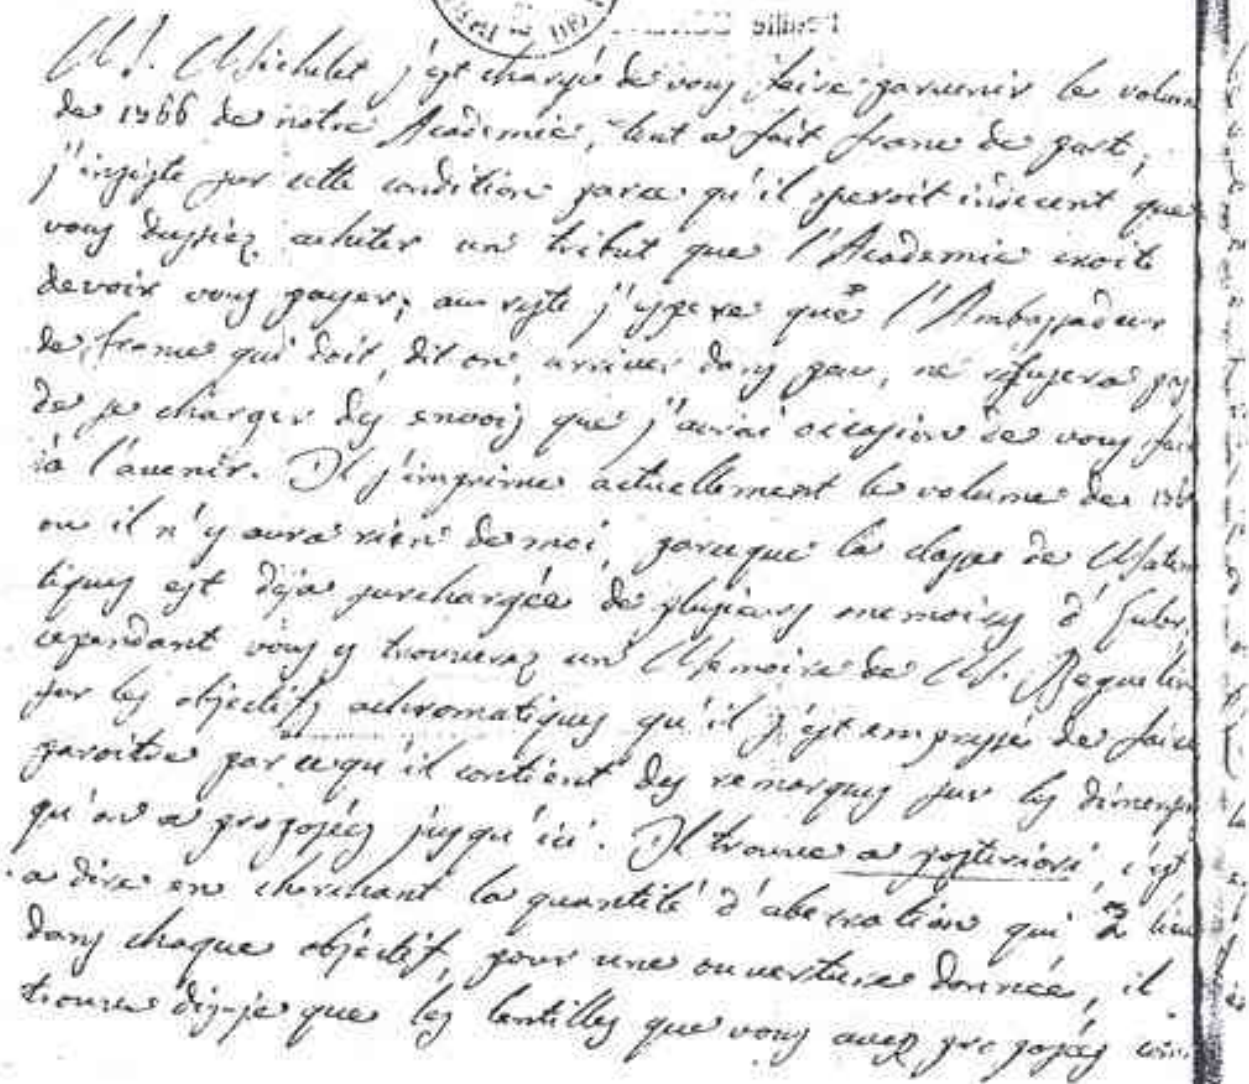 M. Michelet s'est chargé de vous faire parvenir le volum
de 1766 de notre Academie, tout a fait franc de port;
j'insiste sur cette condition parce qu'il seroit indecent que
vous dussiez acheter un tribut que l'Academie croit
devoir vous payer; au reste j'espere que l'Ambassadeur
de france qui doit, dit on, arriver dans peu, ne refusera pas
de se charger des envois que j'aurai occasion de vous fair
à l'avenir. Il s'imprime actuellement le volume de 176
ou il n'y aura rien de moi, parceque la classe de Matem
tiques est deja surchargée de plusieurs memoires d'Euler,
cependant vous y trouverez un Memoire de M. Beguelin
sur les objectifs achromatiques qu'il s'est empressé de faire
paroitre parcequ'il contient des remarques sur les dimensi
qu'on a proposées jusqu'ici. Il trouve a posteriori, c'est
a dire en cherchant la quantité d'aberration qui a lieu
dans chaque objectif, pour une ouverture donnée, il
trouve dis-je que les lentilles que vous avez proposées